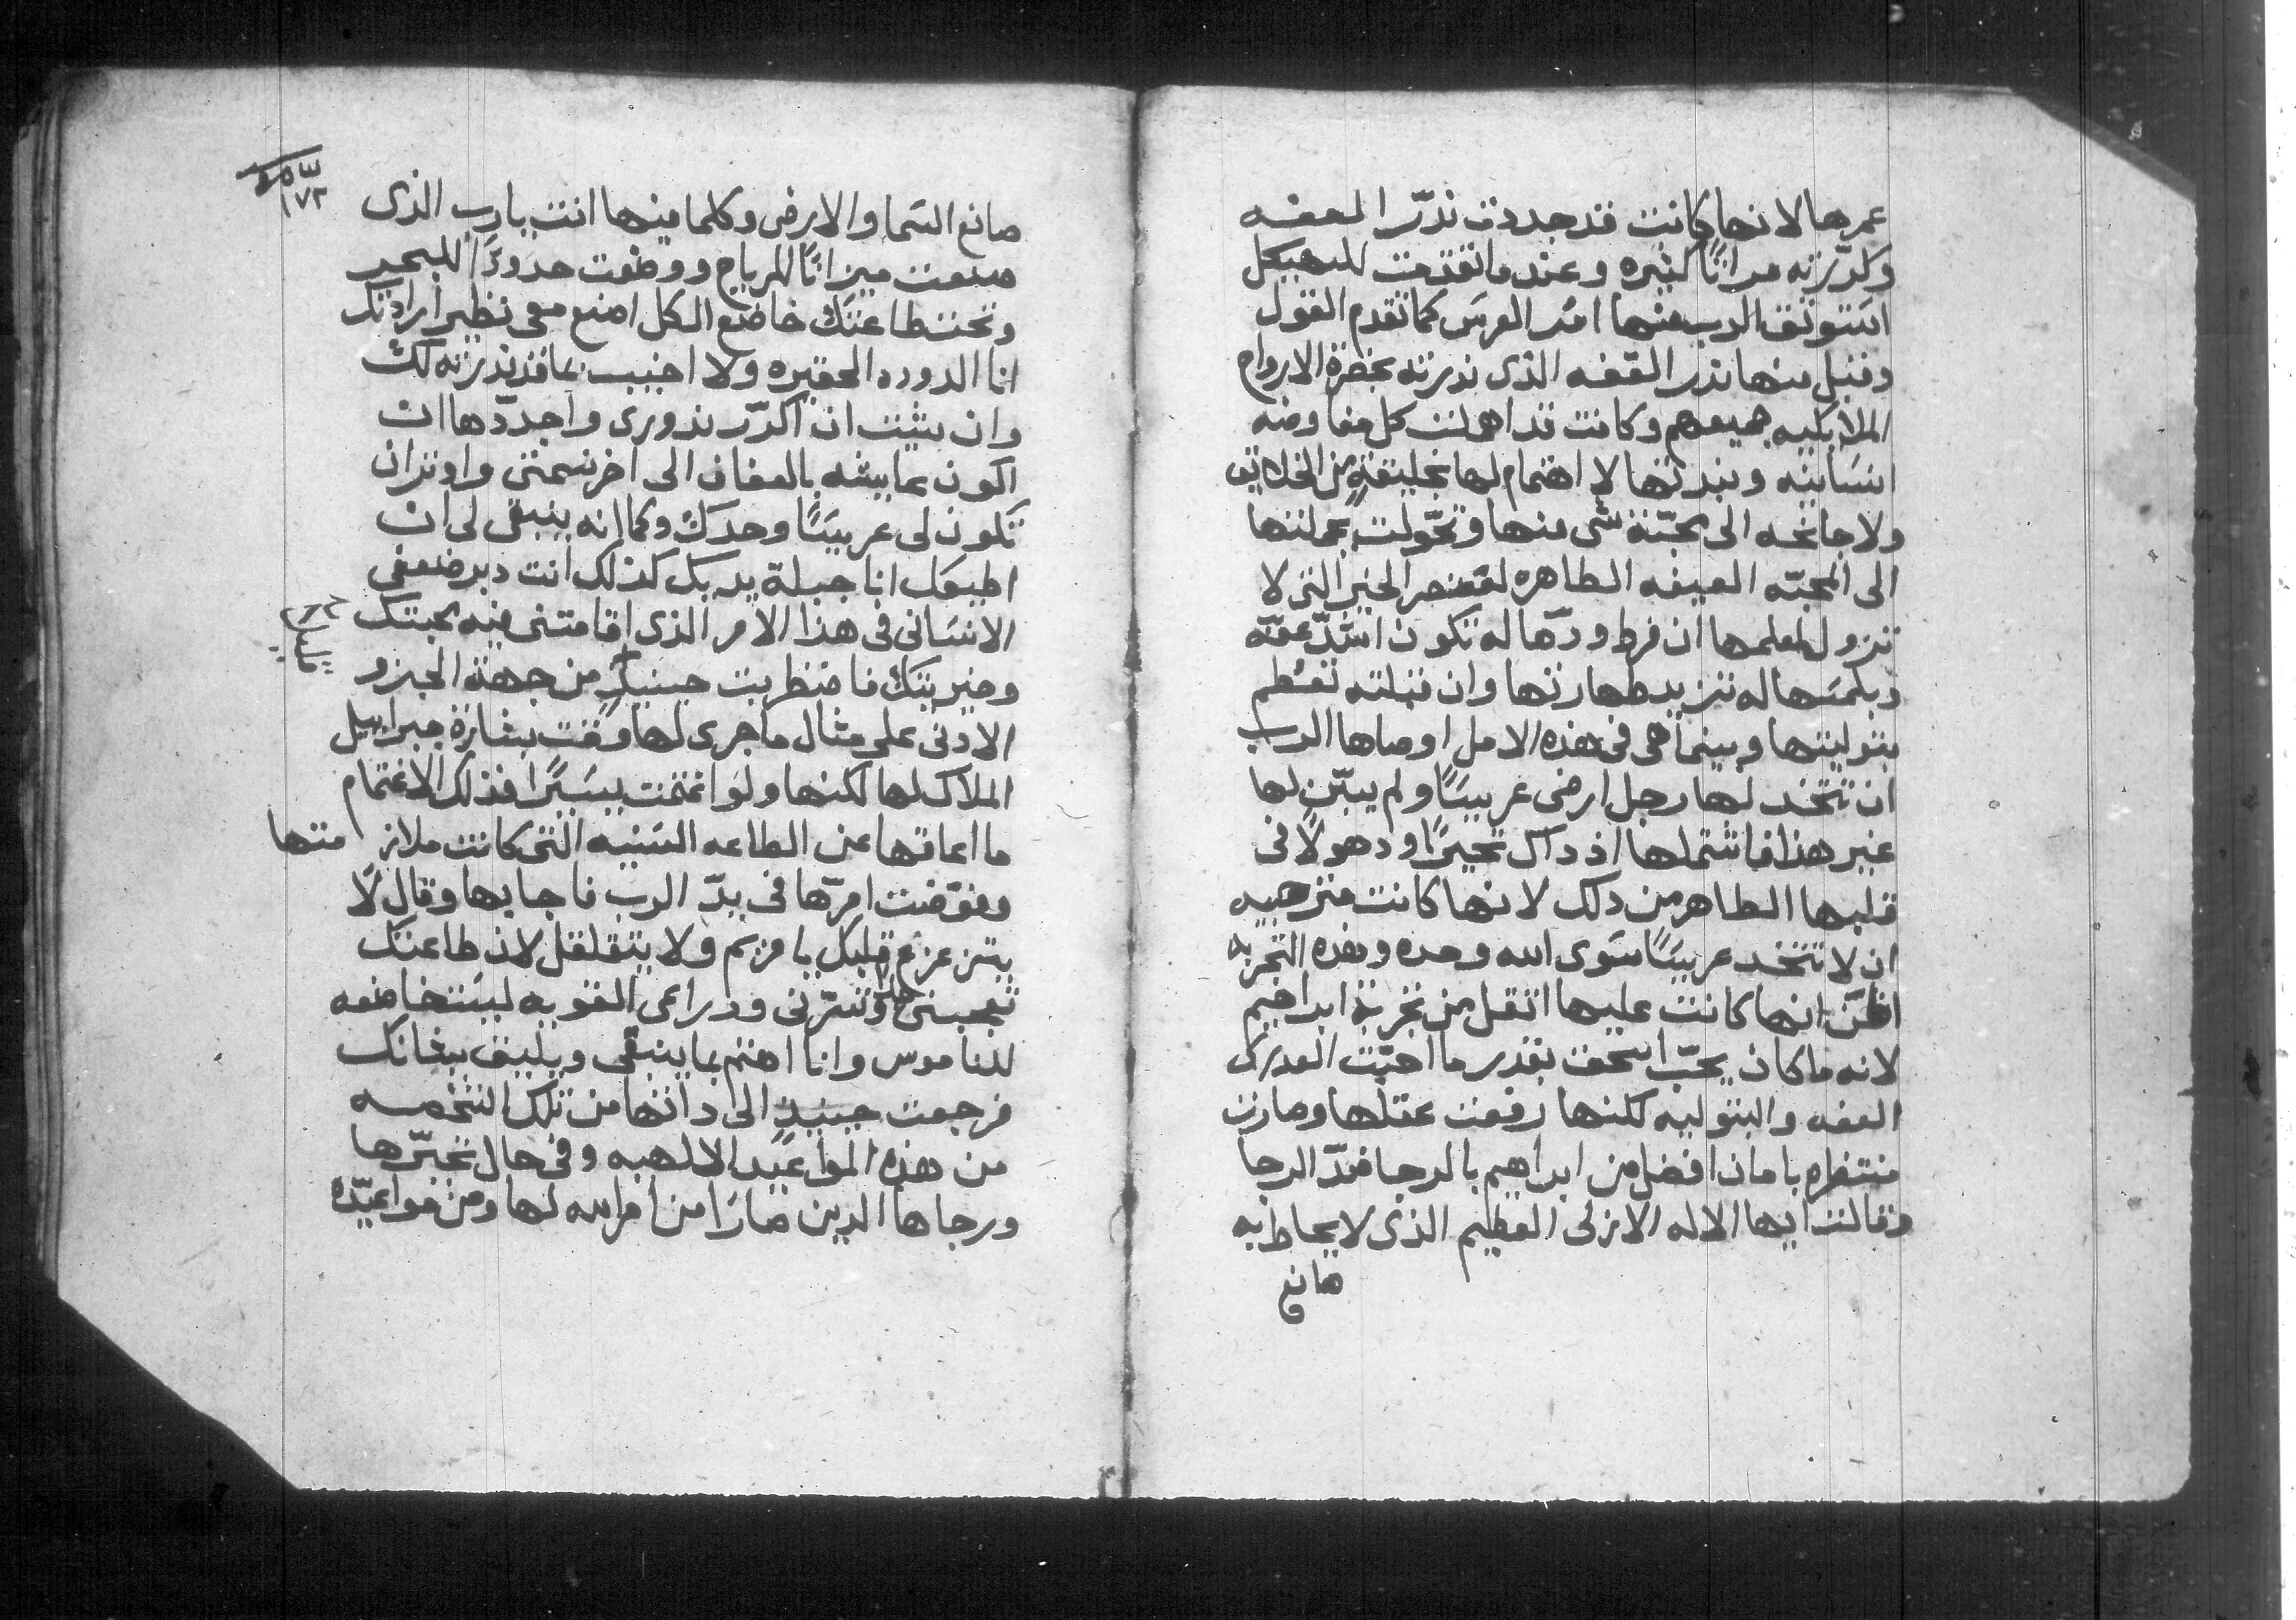 عمرها لانها كانت قد جددت ندّر العفه
وكرّرته مرارًا كثيره وعندما تقدمت للهيكل
استوثق الرب منها امر العرس كما تقدم القول
وقبل منها نذر العّفه الذى نذرته بحضرة الارواح
الملايكيه جميعهم وكانت قد اهملت كل مفاوضه
انسانيه ونبدتها لا اهتمام لها بخليقةٍ من الخلايق
ولا جانحه الى محبّة شى منها وتحّولت بجملتها
الى المحبّه العفيفه الطاهره لعنصر الخير التى لا
تزول لعلمها ان فرط ودّها له تكون اشدّ عفّه
وبلمسها له تزيد طهارتها وان قبلته تعظم
بتوليتها وبينما هى فى هذه الامل اوصاها الرب
ان تتخد لها رجل ارضى عريسًا ولم يبيّن لها
غير هذا فاشتملها اذ داك تحيرًا ودهولًا فى
قلبها الطاهر من دلك لانها كانت مترجيه
ان لا تتخد عريسًا سوى الله وحده وهذه التجربه
اظنّ انها كانت عليها اثقل من تجربة ابراهيم
لانه ما كان يحبّ اسحق بقدر ما احبّت العدرى
العفه والبتوليه لكنها رفعت عقلها وصارت
منتظره بامان افضل من ابراهيم بالرجا ضدّ الرجا
وقالت ايها الاله الازلى العظيم الذى لا يحاط به
صانع
١٧٣
صانع السما والارض وكلما فيها انت يارب الذى
صنعت ميزانًا للرياح ووضعت حدودًا للبحر
وتحت طاعتك خاضع الكل اصنع معى نظير ارادتك
انا الدوده الحقيره ولا اخيب بما قد نذرته لك
وان شيت ان اكرّر ندورى واجدّدها ان
اكون عايشه بالعفاف الى اخر نسمتى واوتران
تكون لى عريسًا وحدك وكما انه ينبغى لى ان
اطيعك انا جبلة يديك كذلك انت دبر ضعفى
الانسانى فى هذا الامر الذى اقامتنى فيه محبتك
وخيريتك فاضطربت حينيدٍ من جهة الجزو
الادنى على مثال ما جرى لها وقت بشارة جبراييل
الملاك لها لكنها ولو اغتمت يسيرًا فذلك الاغتمام
ما اعاقها عن الطاعه السنيه التى كانت ملازمتها
وفوّضت امرّها فى يدّ الرب فاجابها وقال لا
يتزعزع قلبك يا مريم ولا يتقلقل لان طاعتك
تعجبنى وتسرّنى ودراعى القويه ليست خاضعه
لناموس وانا اهتم بما ينبغى ويليق بشانك
فرجعت حينيدٍ الى داتها من تلك الشخصه
من هذه المواعيد الالهيه وفى حال تحيّرها
ورجاها الدين صارا من امر الله لها ومن مواعيّده